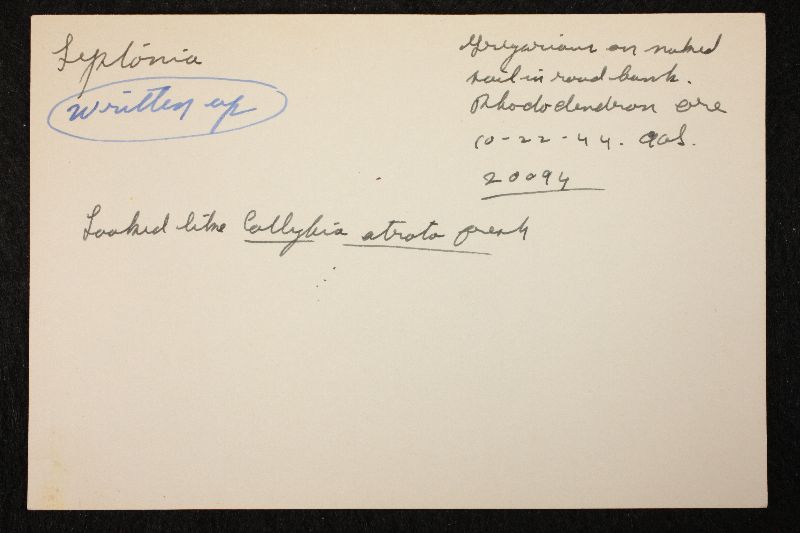 Leptonia
written up
Gregarious on naked
soil in road bank.
Rhododendron, Ore
10-22-44. AHS.
20094
Looked like Collybia atrata fresh